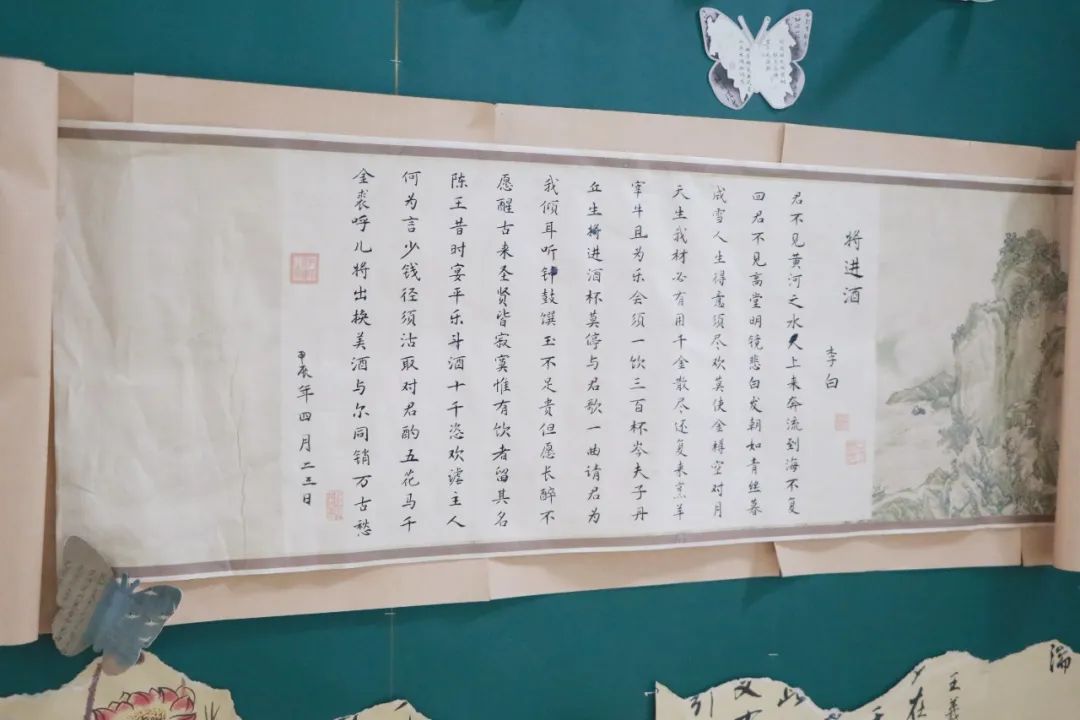 将进酒
李白
君不见黄河之水天上来奔流到海不复
回君不见高堂明镜悲白发朝如青丝暮
成雪人生得意须尽欢莫使金樽空对月
天生我材必有用千金散尽还复来烹羊
宰牛且为乐会须一饮三百杯岑夫子丹
丘生将进酒杯莫停与君歌一曲请君为
我倾耳听钟鼓馔玉不足贵但愿长醉不
愿醒古来圣贤皆寂寞惟有饮者留其名
陈王昔时宴平乐斗酒十千恣欢谑主人
何为言少钱径须沽取对君酌五花马千
金裘呼儿将出换美酒与尔同销万古愁
甲辰年四月二三日
湍
王羲
在
引